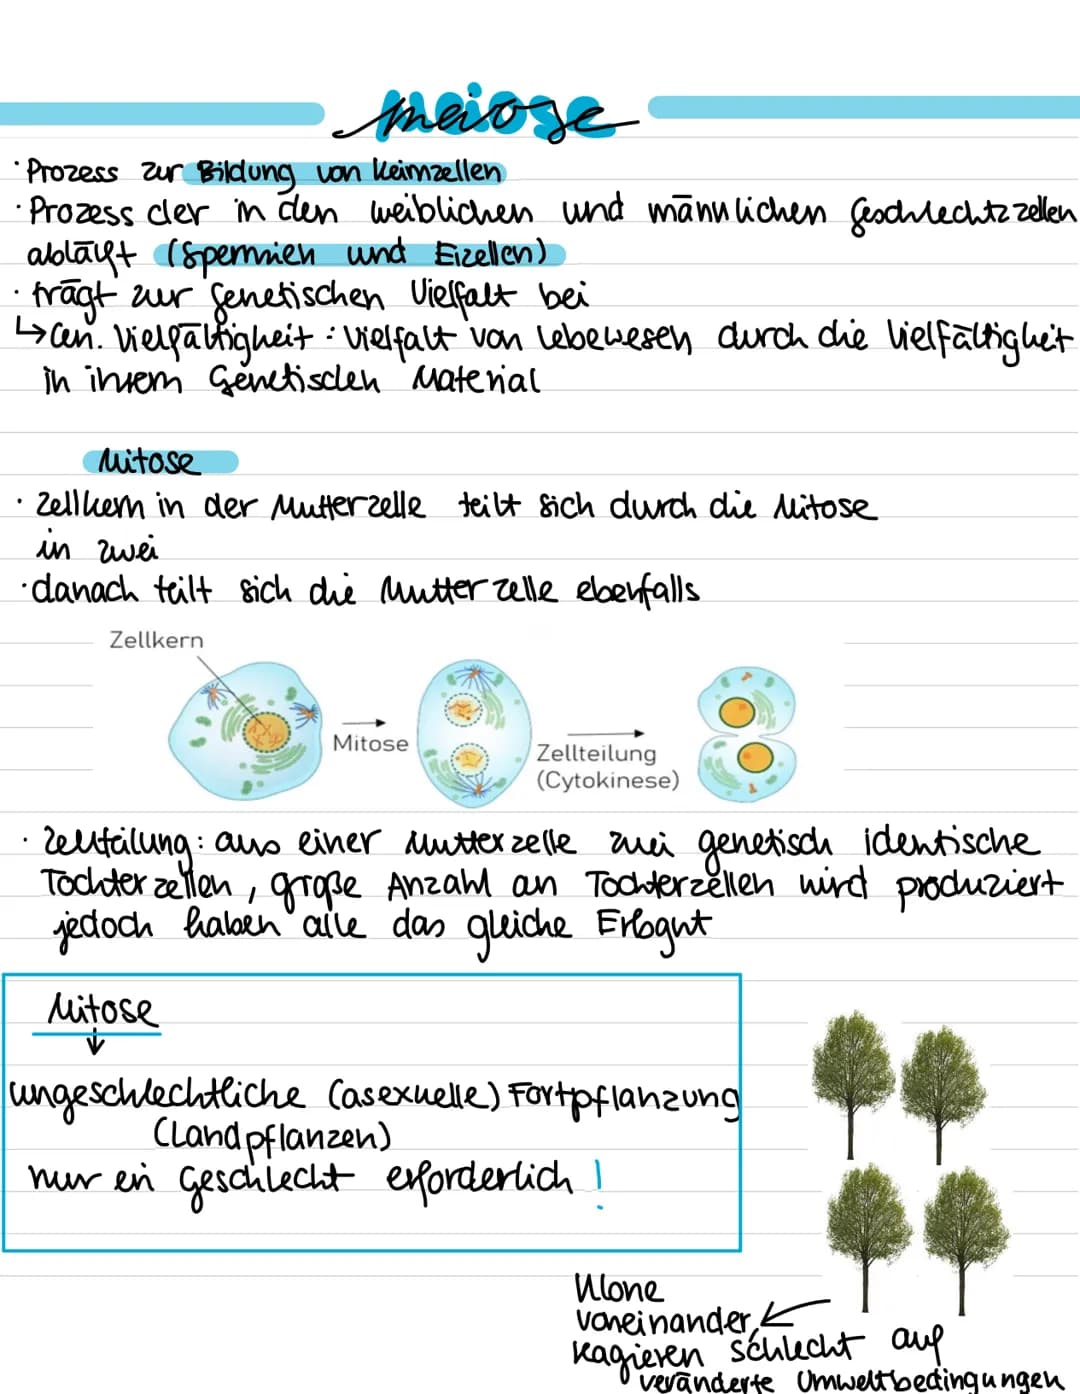 meiose
· Prozess zur Bildung von Keimzellen
· Prozess der in den weiblichen und männlichen Geschlechtszellen
abläuft (Spermien und Eizellen)
· trägt zur genetischen Vielfalt bei
↳ Gen. Vielfältigkeit: Vielfalt von Lebewesen durch die Vielfältigkeit
in ihrem Genetischen Material
Mitose
· Zellkern in der Mutterzelle teilt sich durch die Mitose
in zwei
· danach teilt sich die Mutterzelle ebenfalls
Zellkern
Mitose
Zellteilung
(Cytokinese)
· Zellteilung: aus einer Mutterzelle zwei genetisch identische
Tochterzellen, große Anzahl an Tochterzellen wird produziert
jedoch haben alle das gleiche Erbgut
Mitose
↓
ungeschlechtliche (asexuelle) Fortpflanzung
(Landpflanzen)
nur ein Geschlecht erforderlich !
Klone
voneinander,
reagieren schlecht auf
veränderte Umweltbedingungen